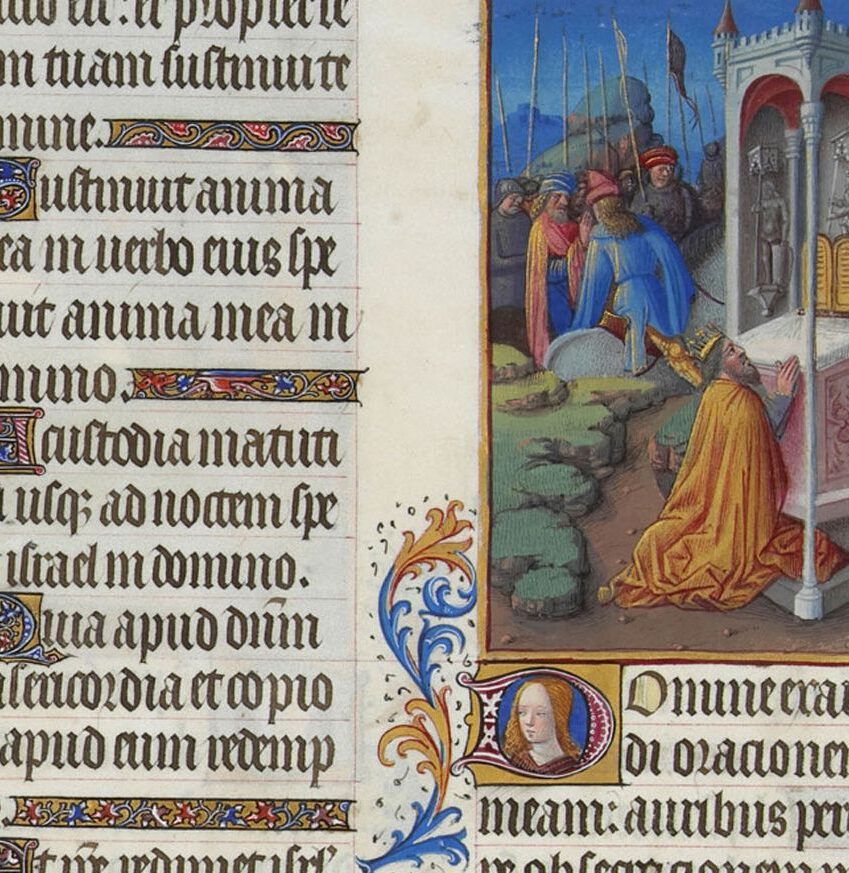 m tuam sustinui te
mine.
Sustinuit anima
ea in uerbo eius spe
uit anima mea in
mino.
A custodia matuti
usq; ad noctem spe
israel in domino.
Quia apud dn̄m
misericordia et copio
apud eum redemp
redimet isrl'
Domine exau
di orationem
meam: auribus per